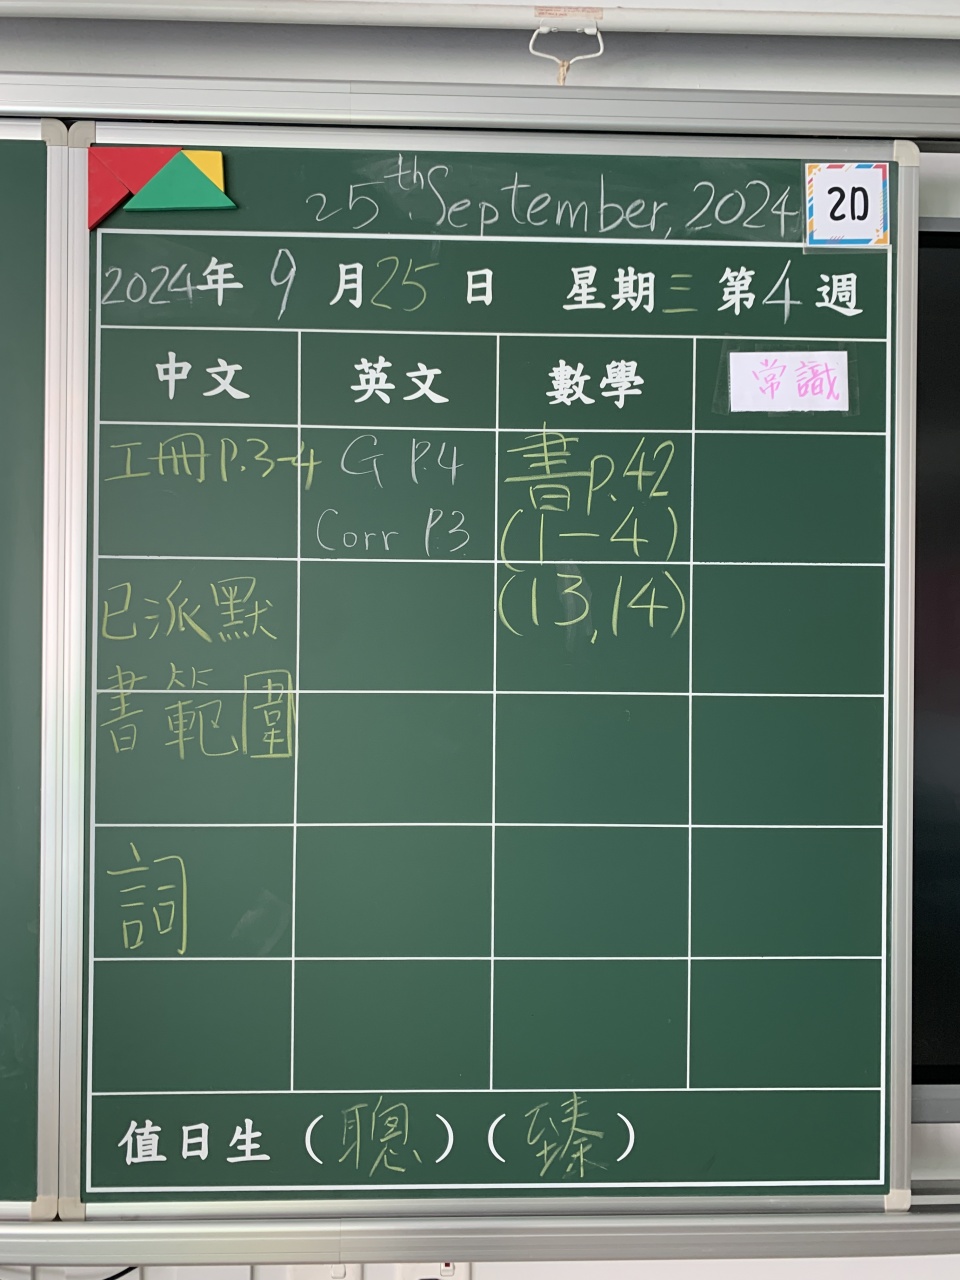 25th September, 2024
2D
2024年 9月25日 星期三 第4週
中文 英文 數學 常識
工冊P.3-4 G P.4 書p.42
Corr P.3 (1-4)
已派默 (13,14)
書範圍
詞
值日生(聰)(臻)